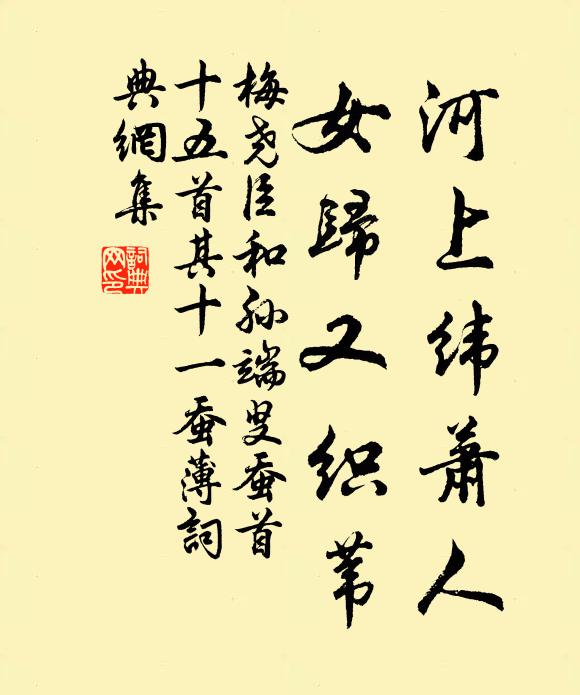 河上纬萧人
女歸又织苇
梅尧臣和孙端叟蚕首
十五首其十一蚕薄詞
典網集
詞典网印